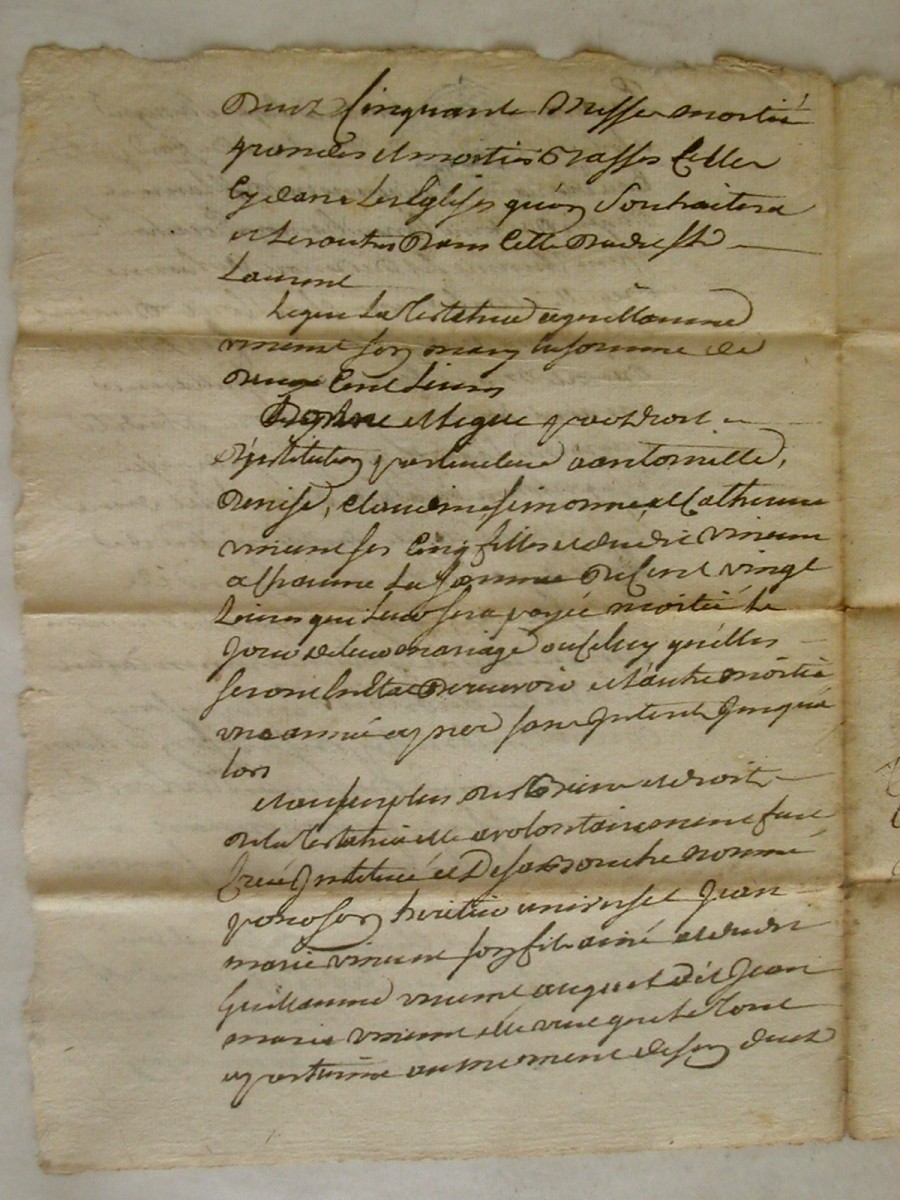 Deux Cinquante Messes moitié
grandes et moitié basses Celles
Cy dans les Eglises qu'on Souhaitera
et les autres dans Cette de St
Laurent
Legue la testatrice a guillaume
vincent son mary la somme de
deux Cent Livres
Donne et legue par droit
d'institution particuliere a antoinette,
Denise, Claudine simonne, et Catherine
vincent ses Cinq filles et dudit vincent
a chacune la somme de Cent vingt
Livres qui leur sera payée moitié le
jour de leur mariage ou celuy qu'elles
seront en Etat de recevoir et l'autre moitié
une année apres sans interets jusqu'a
lors
et au surplus des biens et droits
de la testatrice elle a volontairement fait
Creé institué et de sa bouche nommé
pour son heritier universel jean
marie vincent son fils ainé et dudit
Guillaume vincent auquel dit jean
marie vincent elle veut que le tout
apartienne au moment de son deces